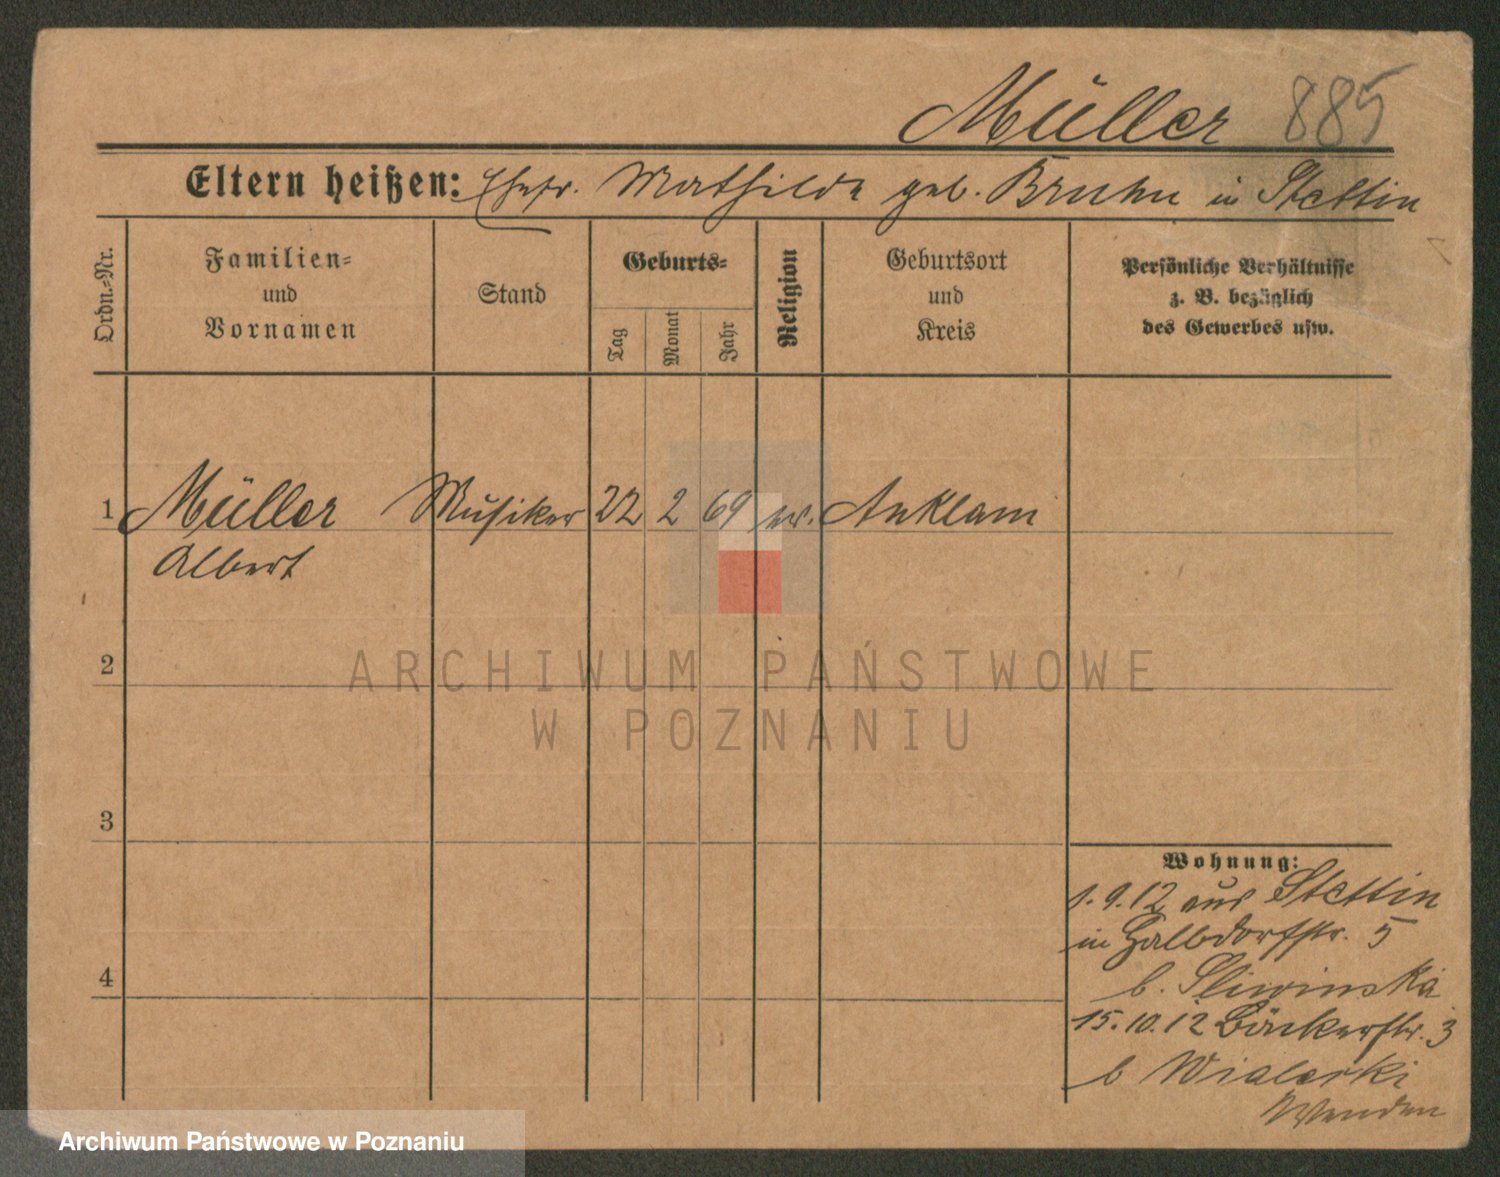 Müller 885
Eltern heißen: Ehefr. Mathilde geb. Bruhn in Stettin
Ordn.-Nr.
Familien-
und
Vornamen
Stand
Geburts-
Tag
Monat
Jahr
Religion
Geburtsort
und
Kreis
Persönliche Verhältnisse
z. B. bezüglich
des Gewerbes usw.
1 Müller Musiker 22 2 69 ev. Anklam
Albert
2
3
4
Wohnung:
1.9.12 aus Stettin
in Halbdorfstr. 5
b. Sliwinska
15.10.12 Bäckerstr. 3
b
ARCHIWUM PAŃSTWOWE
W POZNANIU
Archiwum Państwowe w Poznaniu